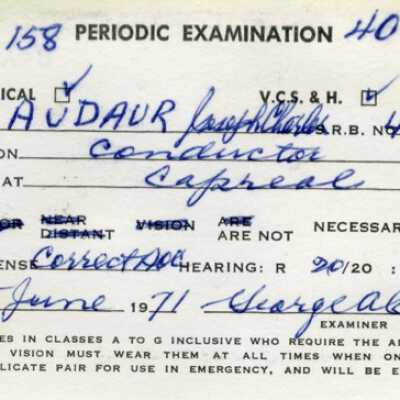 158 PERIODIC EXAMINATION 40
ICAL V.C.S. & H.
AUDAUR Joseph Charles S.R.B. NO. 4
ON Conductor
AT Capreol
OR NEAR VISION ARE NECESSAR
DISTANT ARE NOT
ENSE Correct HEARING: R 20/20 :
June 1971 George
EXAMINER
ES IN CLASSES A TO G INCLUSIVE WHO REQUIRE THE A
VISION MUST WEAR THEM AT ALL TIMES WHEN ON
LICATE PAIR FOR USE IN EMERGENCY, AND WILL BE E